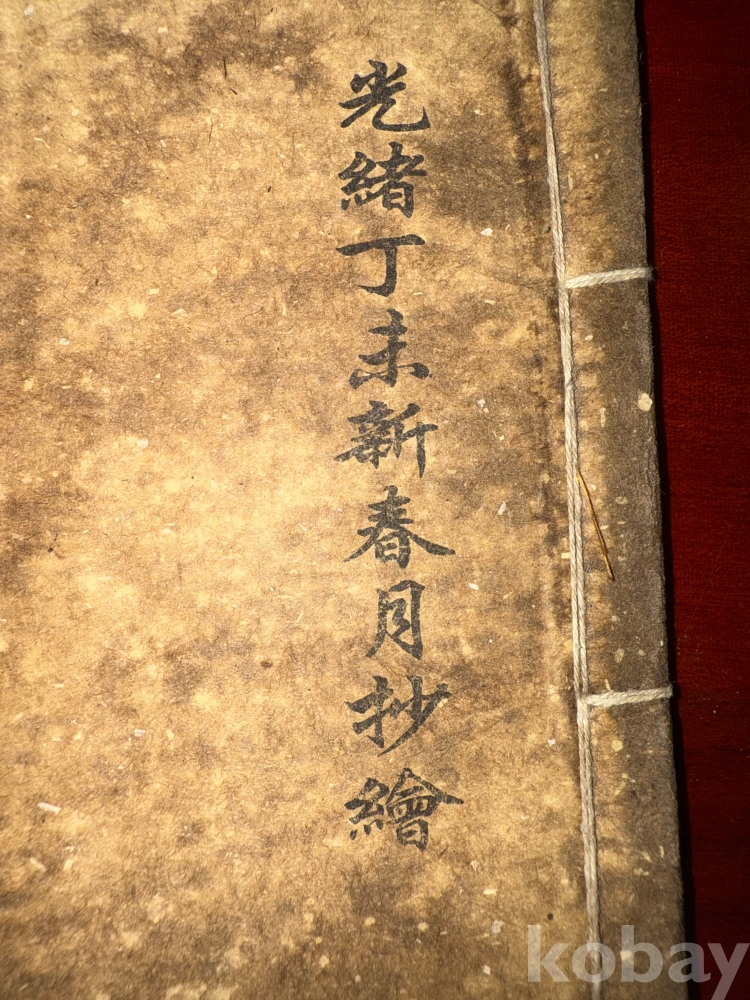 光緒丁未新春月抄繪
kobay